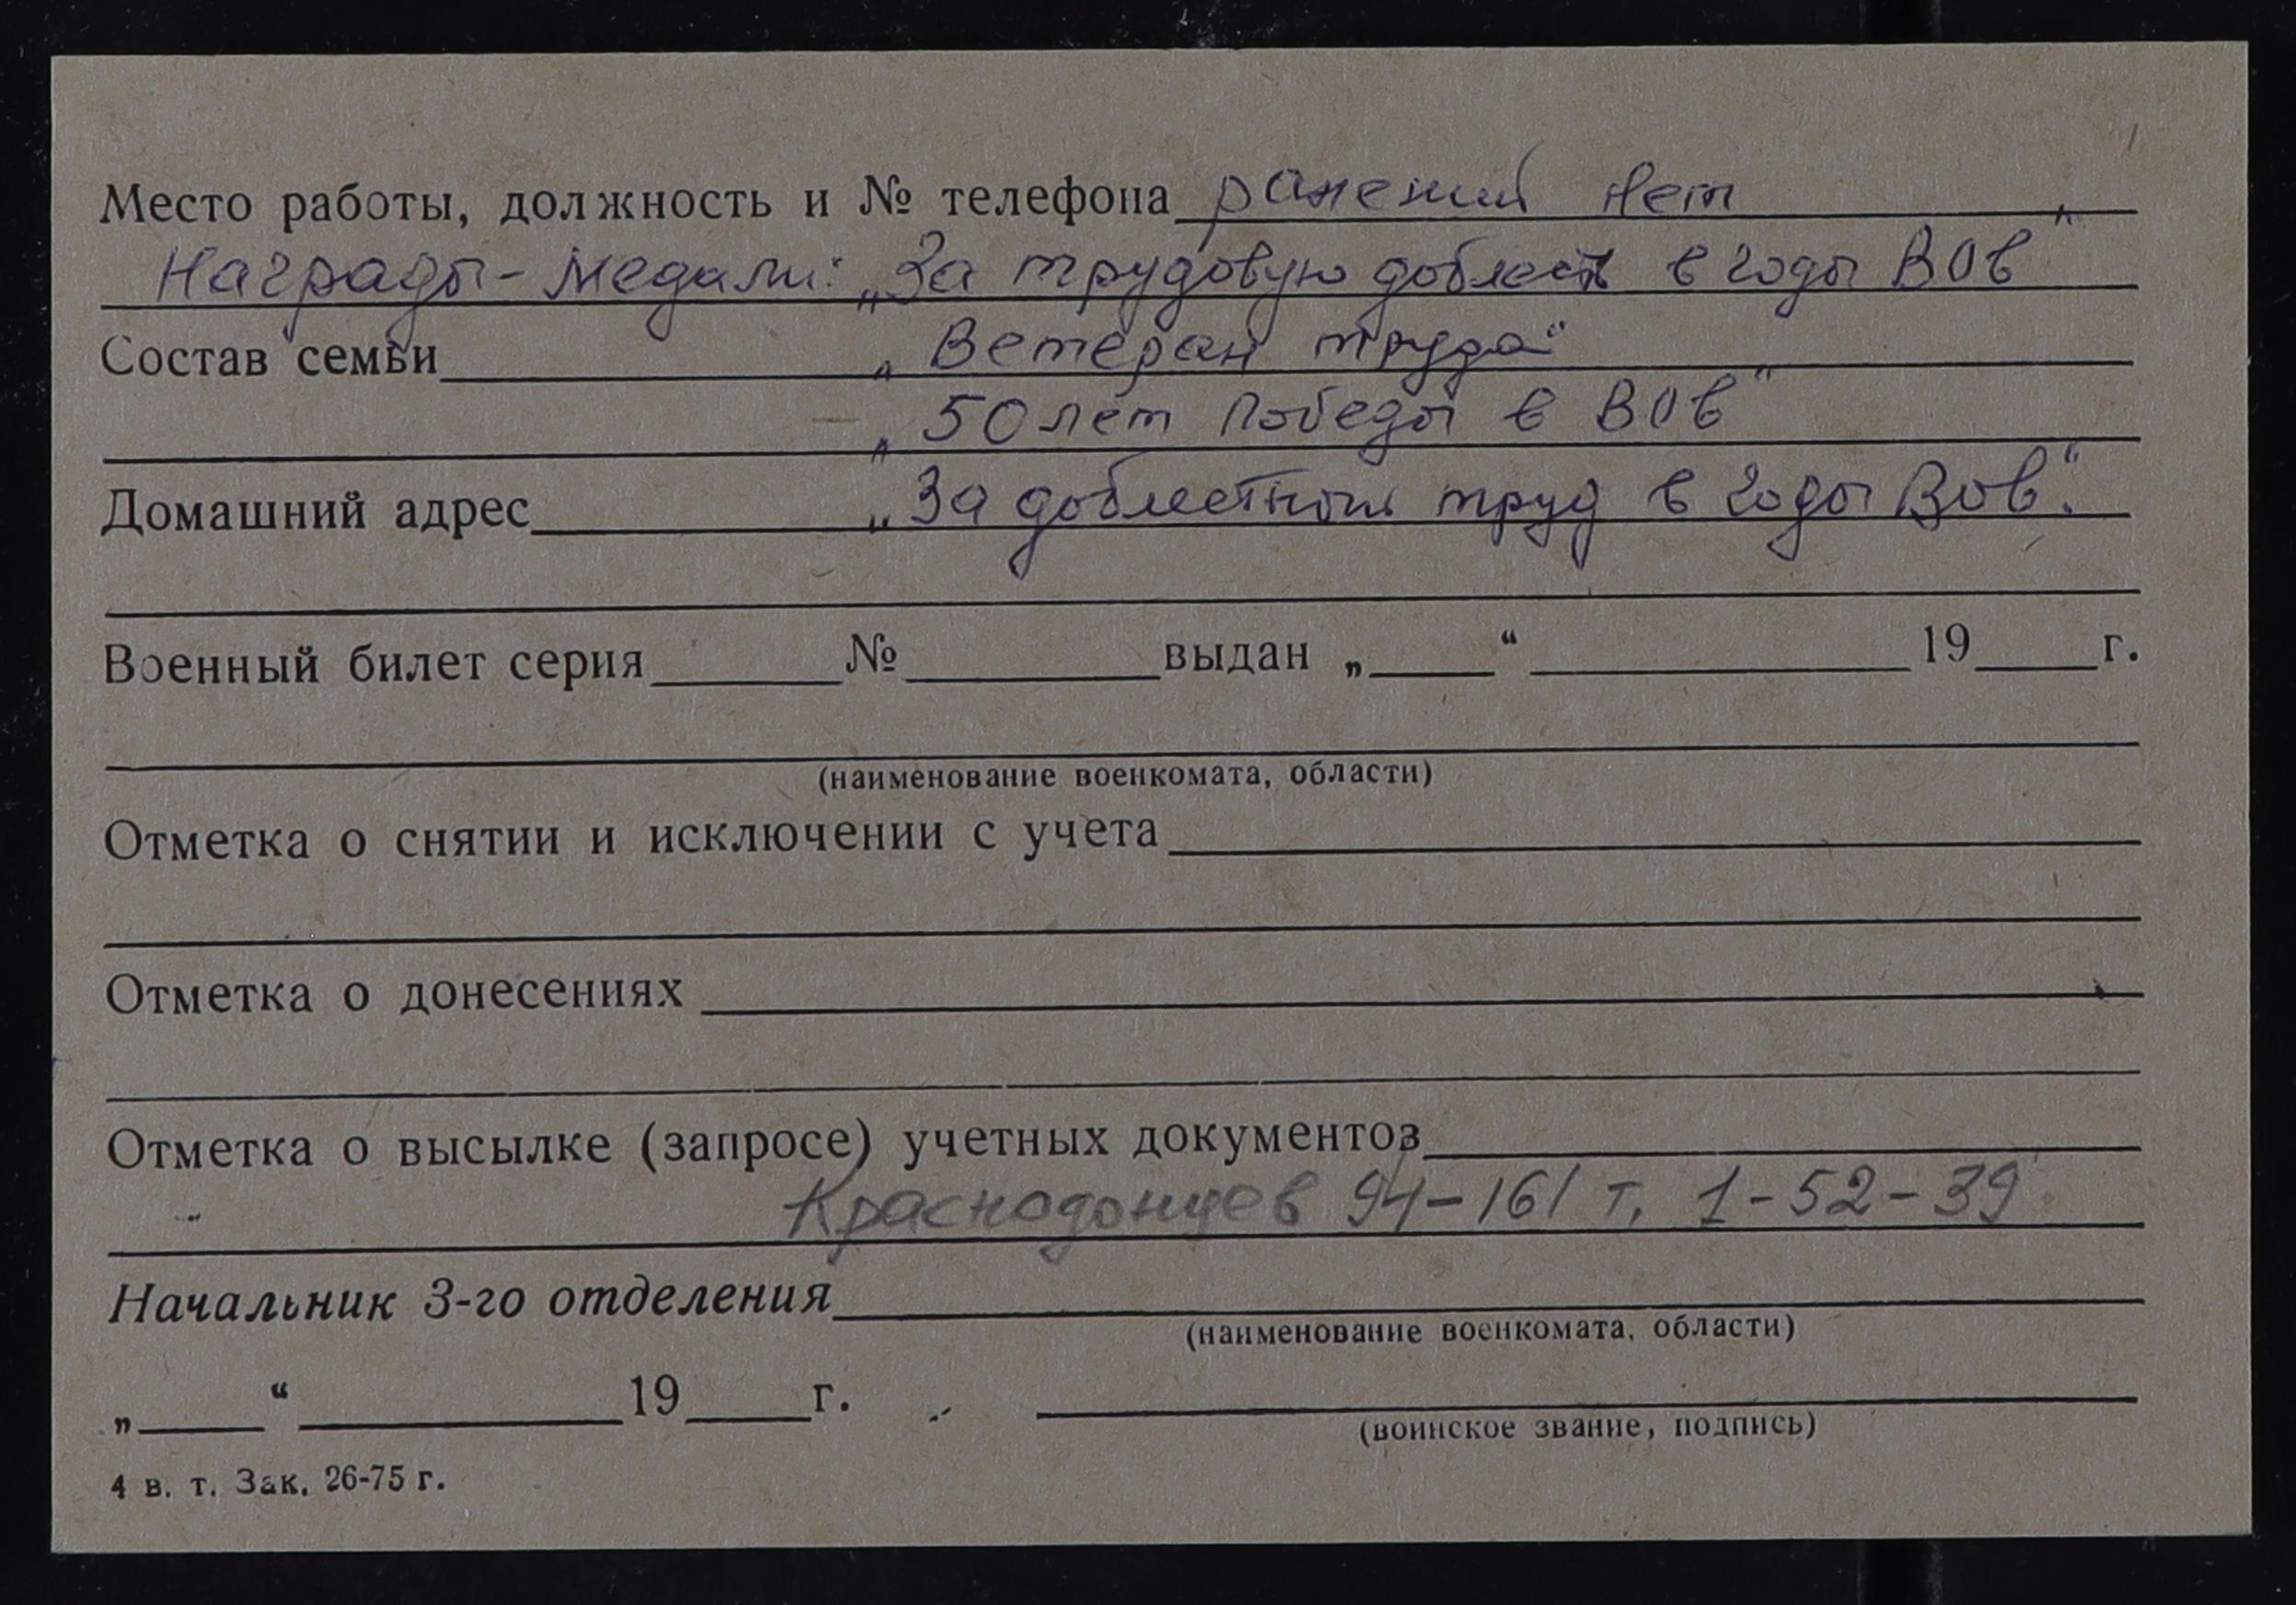 Место работы, должность и № телефона ранений нет
Награды - медали: „За трудовую доблесть в годы ВОв“
Состав семьи „Ветеран труда“
„50 лет Победы в ВОв“
Домашний адрес „За доблестный труд в годы ВОв“.
Военный билет серия №  выдан „ “ 19 г.
(наименование военкомата, области)
Отметка о снятии и исключении с учета
Отметка о донесениях
Отметка о высылке (запросе) учетных документов
Краснодонцев 94-161 т. 1-52-39
Начальник 3-го отделения
(наименование военкомата, области)
„ “ 19 г.
(воинское звание, подпись)
4 в. т. Зак. 26-75 г.